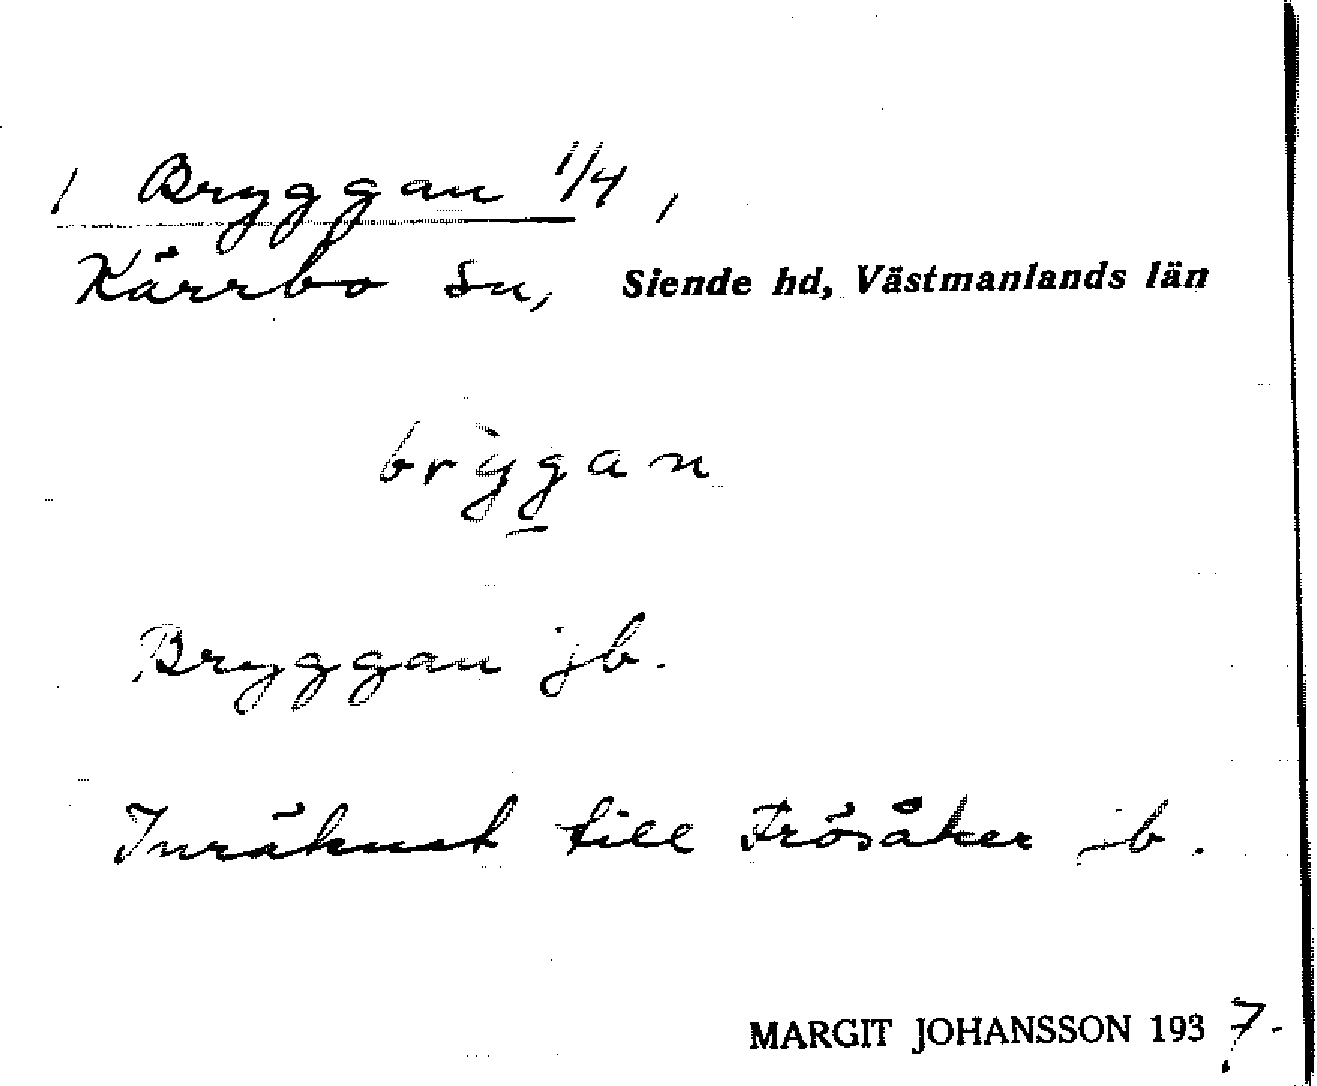 / Bryggan 1/4 ,
Kärrbo sn, Siende hd, Västmanlands län
brỳgan
Bryggan jb.
Inräknat till Frösåker jb.
MARGIT JOHANSSON 1937.